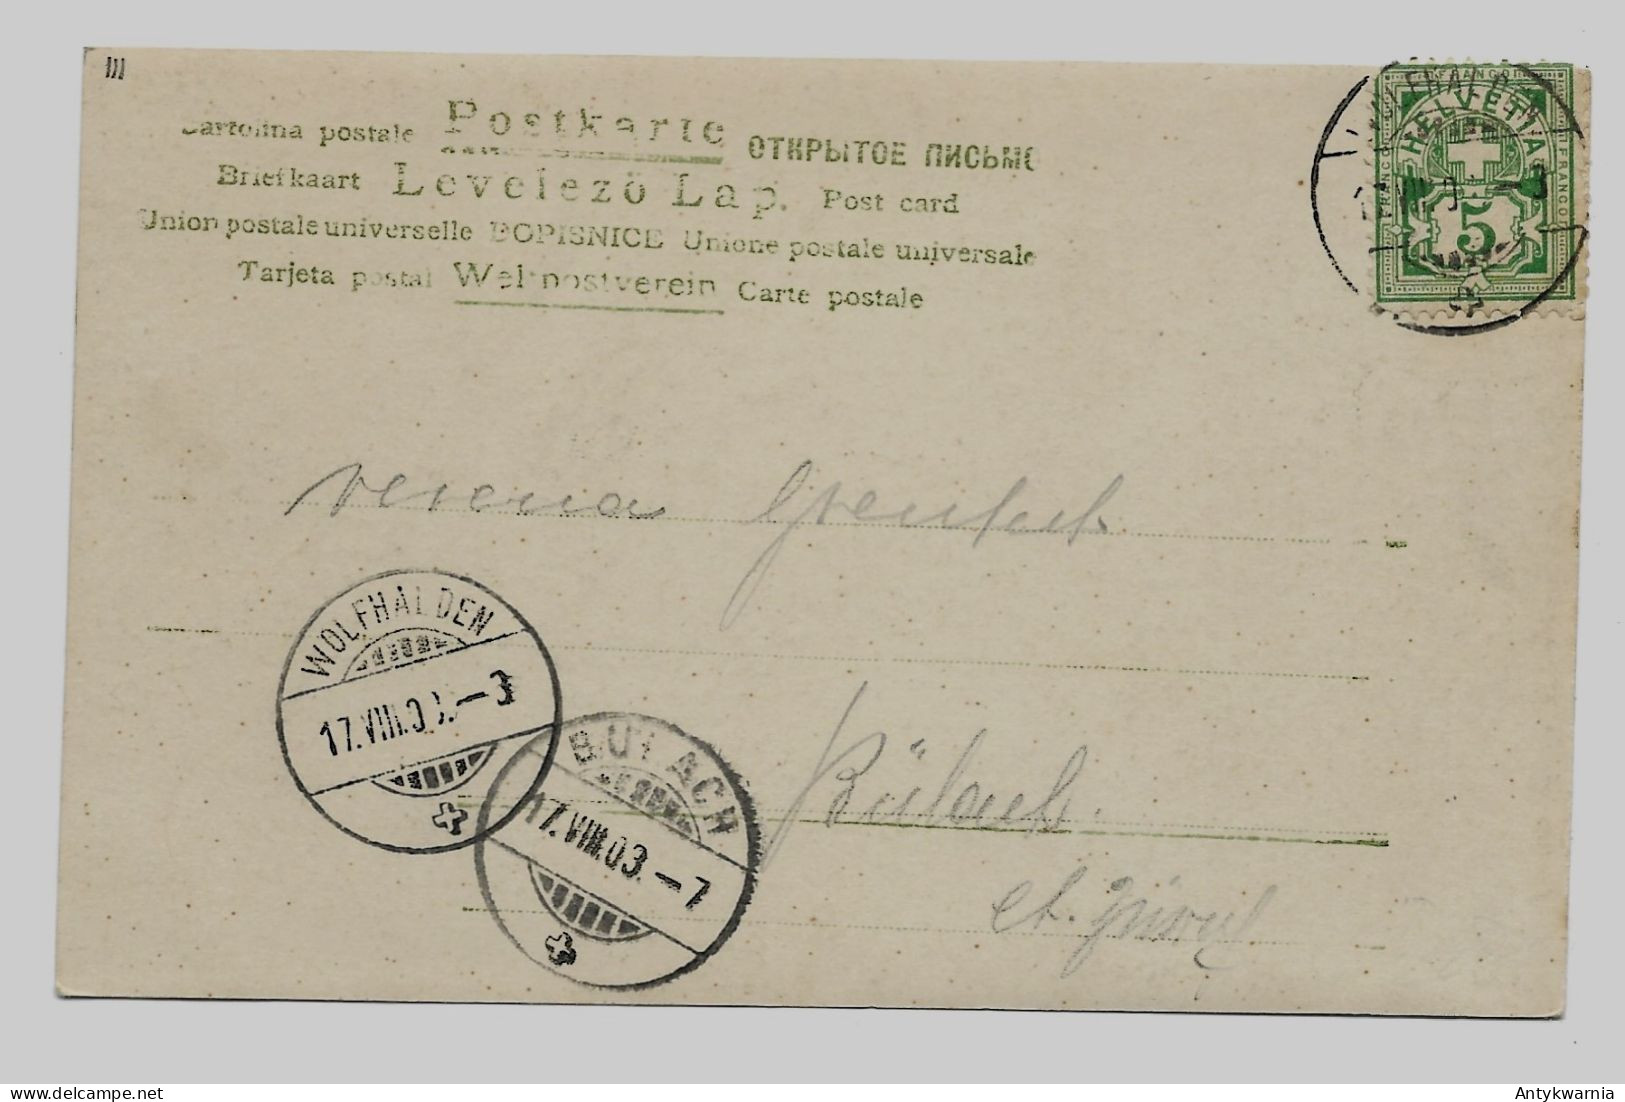 III
Cartolina postale Postkarte ОТКРЫТОЕ ПИСЬМО
Briefkaart Levelező Lap. Post card
Union postale universelle DOPISNICE Unione postale universale
Tarjeta postal Weltpostverein Carte postale
WOLFHALDEN
FRANCO
HELVETIA
FRANCO
FRANCO
5
Verena
WOLFHALDEN
17.VIII.03.–3
BÜLACH
17.VIII.03.–7
Bülach.
ct. Zürich
delcampe.net
Antykwarnia